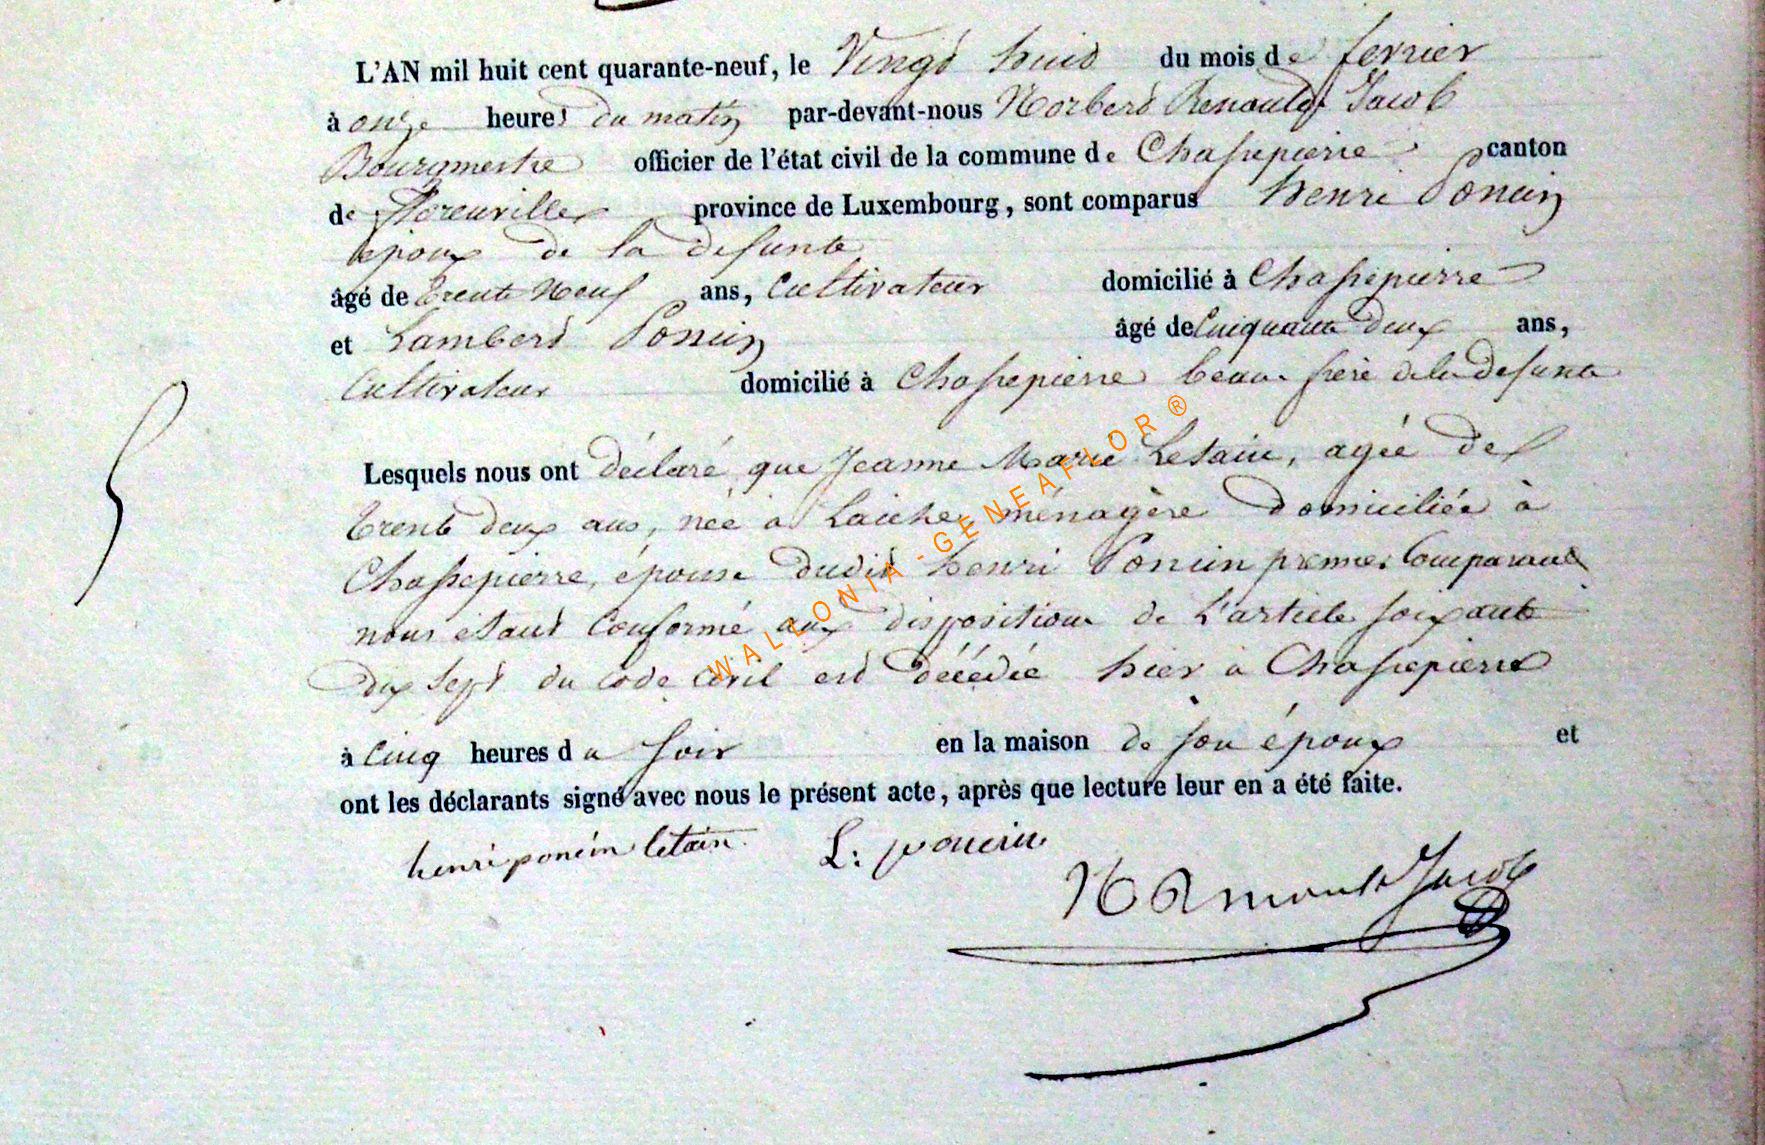 L'AN mil huit cent quarante-neuf, le Vingt huit du mois de fevrier
à onze heures du matin par-devant-nous Norbert Renauld Jacob
Bourgmestre officier de l'état civil de la commune de Chassepierre canton
de Florenville province de Luxembourg, sont comparus henri Poncin
époux de la defunte
âgé de trente Neuf ans, Cultivateur domicilié à Chassepierre
et Lambert Poncin âgé de Cinquante deux ans,
Cultivateur domicilié à Chassepierre beau frère de la defunte
Lesquels nous ont déclaré que Jeanne Marie Letain, agée de
trente deux ans, née à Laiche, ménagère domiciliée à
Chassepierre, épouse dudit henri Poncin premier Comparant
nous étant Conformé aux disposition de L'article soixante
dix sept du Code Civil est décédée hier à Chassepierre
à Cinq heures du soir en la maison de son époux et
ont les déclarants signé avec nous le présent acte, après que lecture leur en a été faite.
henri poncin letain L: poncin
N Jacob
WALLONIA - GENEAFLOR ®